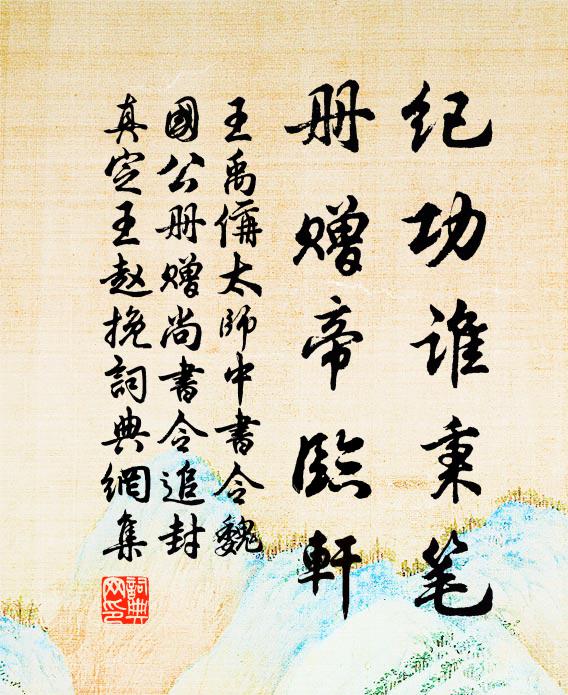 纪功谁秉笔
册赠帝临轩
王禹偁太师中书令魏
國公册赠尚書令追封
真定王赵挽詞典網集
詞典
网印